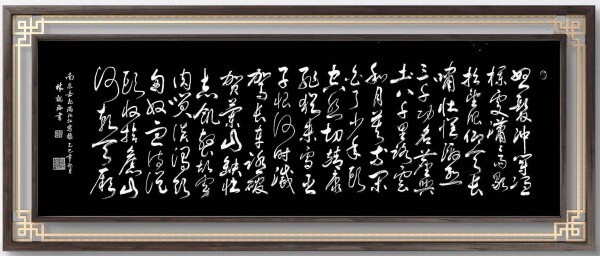 怒髮冲冠凭
欄處瀟瀟雨歇
抬望眼仰天長
嘯壯懷激烈
三十功名塵與
土八千里路雲
和月莫等閑
白了少年頭
空悲切靖康
恥猶未雪臣
子恨何時滅
駕長車踏破
賀蘭山缺壯
志飢餐胡虜
肉笑談渴飲
匈奴血待從
頭收拾舊山
河朝天闕
南宋岳飛滿江紅